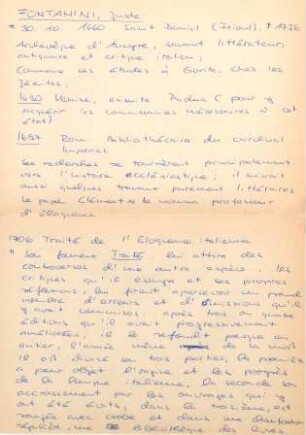 FONTANINI, Juste
* 30.10.1660 Saint Daniel (Frioul), † 1736
Archevêque d'Ancyre, savant littérateur,
antiquaire et critique italien;
Commence ses études à Gorite, chez les
Jésuites;
1690 Venise, ensuite Padua (pour y
acquérir les connaissances nécessaires à cet
état)
1697 Rom Bibliothécaire du cardinal
Imperiali
Ses recherches se tournèrent principalement
vers l'histoire ecclésiastique; il suivait
aussi quelques travaux purement littéraires
Le pape Clément le nomma professeur
d'éloquence
1706 Traité de l'Eloquence italienne
* Son fameux Traité lui attira des
controverses d'une autre espèce... les
critiques qu'il essuya et ses propres
réflexions lui firent apercevoir un grand
nombre d'erreurs et d'omissions qu'il
y avait commises après trois ou quatre
éditions qu'il avait progressivement
améliorées, il le refondit presque en
entier, l'année même de sa mort
le divisé en trois parties, la première
a pour objet l'origine et les progrès
de la langue italienne, la seconde son
accroissement par les ouvrages qui y
ont été écrits, dans la troisième, est
rangée avec ordre et dans une distribution
régulière, une Bibliothèque des livres